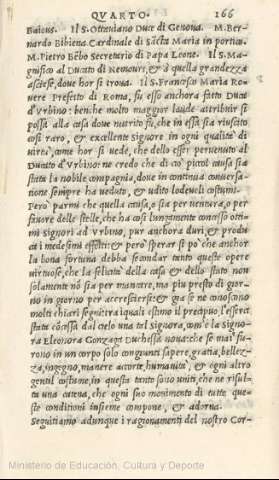 QVARTO. 166
Baious. Il S. Ottaviano Duce di Genova. M. Ber-
nardo Bibiena Cardinale di Sãcta Maria in portico.
M. Pietro Bẽbo Secretario di Papa Leone. Il S. Ma-
gnifico al Ducato di Nemours, & à quella grandezza
ascese, doue hor si troua. Il S. Francesco Maria Rouere
Prefetto di Roma, fu esso anchora fatto Duca
d'Vrbino: benche molto maggior laude attribuir si
possa alla casa doue nutrito fù, che in essa sia riuscito
cosi raro, & excellente Signore in ogni qualità di
virtù, come hor si uede, che dello esser peruenuto al
Ducato d'Vrbino: ne credo che di ciò piccol causa sia
stata la nobile compagnia, doue in continua conuersa-
tione sempre ha ueduto, & udito lodeuoli costumi.
Però parmi che quella causa, o sia per uentura, o per
fauore delle stelle, che ha cosi lungamente concesso otti-
mi Signori ad Vrbino, pur anchora duri, & produ-
ca i medesimi effetti: & però sperar si po che anchor
la bona fortuna debba secundar tanto queste opere
virtuose, che la felicità della casa & dello stato non
solamente nõ sia per mancare, ma piu presto di gior-
no in giorno per accrescersi: & già se ne conoscono
molti chiari segni tra i quali estimo il precipuo l'esserci
stata cõcessa dal cielo una tal Signora, com'è la Signo-
ra Eleonora Gonzaga Duchessa noua: che se mai fu-
rono in un corpo solo congiunti sapere, gratia, bellez-
za, ingegno, manere accorte, humanità, & ogni altro
gentil costume, in questa tanto sono uniti, che ne risul-
ta una catena, che ogni suo mouimento di tutte que-
ste conditioni insieme compone, & adorna.
Seguitiamo adunque i ragionamenti del nostro Cor-
Ministerio de Educación, Cultura y Deporte